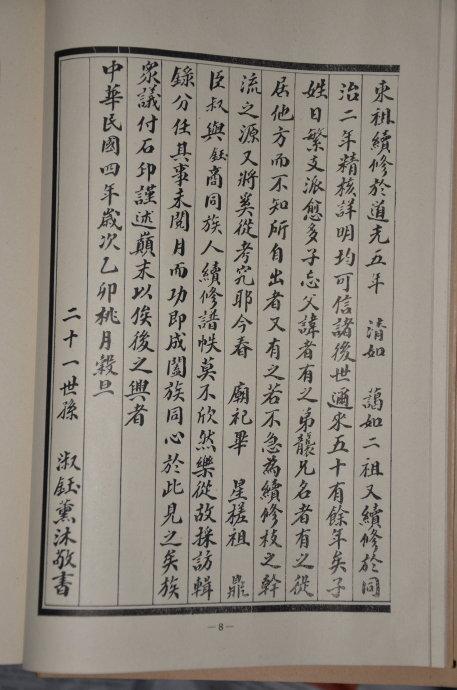 東祖續修於道光五年 清如 藹如二祖又續修於同
治二年精核詳明均可信諸後世邇來五十有餘年矣子
姓日繁支派愈多子忘父諱者有之弟襲兄名者有之從
居他方而不知所自出者又有之若不急為續修枝之幹
流之源又將奚從考究耶今春 廟祀畢 星槎祖 鼎
臣叔與鈺商同族人續修譜帙莫不欣然樂從故採訪輯
錄分任其事未閱月而功即成闔族同心於此見之矣族
衆議付石印謹述巔末以俟後之興者
中華民國四年歲次乙卯桃月穀旦
二十一世孫 淑鈺薰沐敬書
—8—